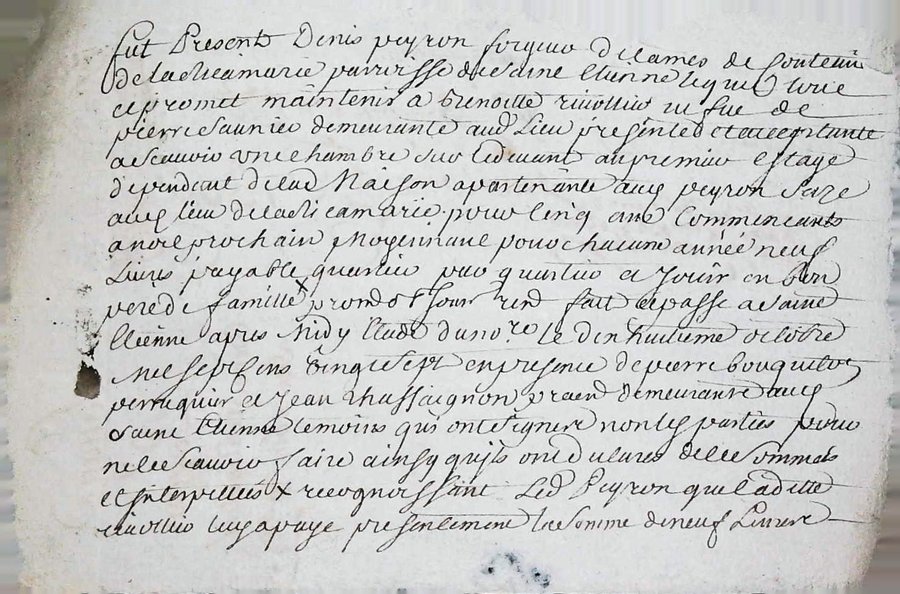 fut Present Denis peyron forgeur de lames de Contenü
de la Ricamarie parroisse de Saint Etienne lequel loue
et promet maintenir a benoitte rivollier vefue de
pierre Saunier demeurante aud Lieu présente et acceptante
a scavoir une chambre sur le devant au premier estage
dependant de lad Maison apartenante aud peyron size
aud lieu de la Ricamarie pour cinq ans Commencants
a noel prochain Moyennant pour chacune année neuf
Livres payable quartier par quartier et jouir en bon
pere de famille x promet rend fait et passe a Saint
Etienne apres Midy Etude du nore le dix huitieme octobre
Mil sept cens vingt sept en presence de pierre bouquillot
perruquier et Jean Chassaignon praen demeurants aud
Saint Etienne temoins qui ont signere non les parties pour
ne le scavoir faire ainsy quils ont declaré de ce sommés
et interpellés x recognoissant Led Peyron que laditte
rivollier luy a payé presentement la somme de neuf Livres